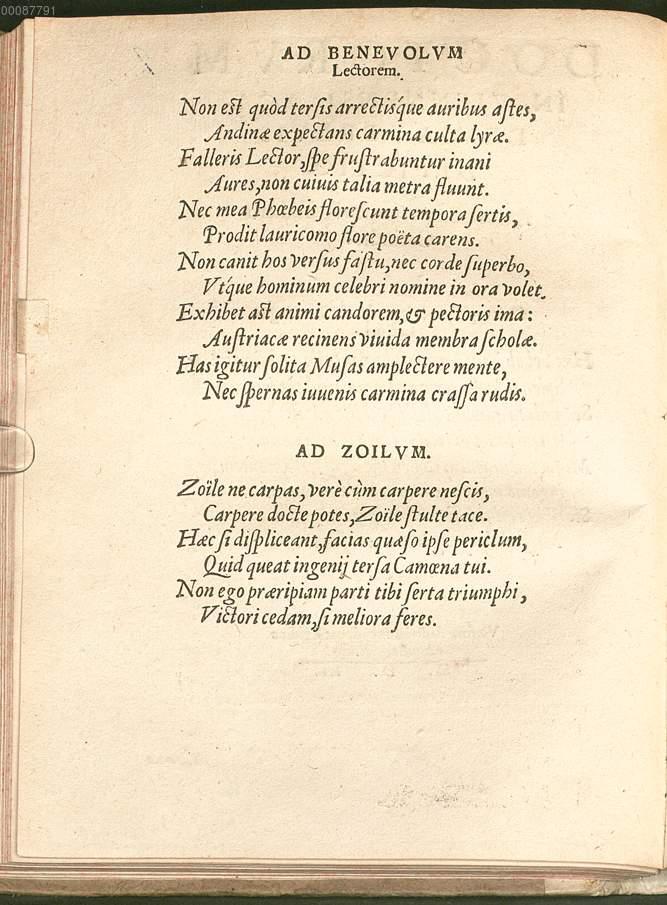 00087791
AD BENEVOLVM
Lectorem.
Non eſt quòd terſis arrectisq́ue auribus aſtes,
Andinæ expectans carmina culta lyræ.
Falleris Lector, ſpe fruſtrabuntur inani
Aures, non cuiuis talia metra fluunt.
Nec mea Phœbeis floreſcunt tempora ſertis,
Prodit lauricomo flore poëta carens.
Non canit hos verſus faſtu, nec corde ſuperbo,
Vtq́ue hominum celebri nomine in ora volet.
Exhibet aſt animi candorem, & pectoris ima:
Auſtriacæ recinens viuida membra ſcholæ.
Has igitur ſolita Muſas amplectere mente,
Nec ſpernas iuuenis carmina craſſa rudis.
AD ZOILVM.
Zoïle ne carpas, verè cùm carpere neſcis,
Carpere docte potes, Zoïle ſtulte tace.
Hæc ſi diſpliceant, facias quæſo ipſe periclum,
Quid queat ingenij terſa Camœna tui.
Non ego præripiam parti tibi ſerta triumphi,
Victori cedam, ſi meliora feres.